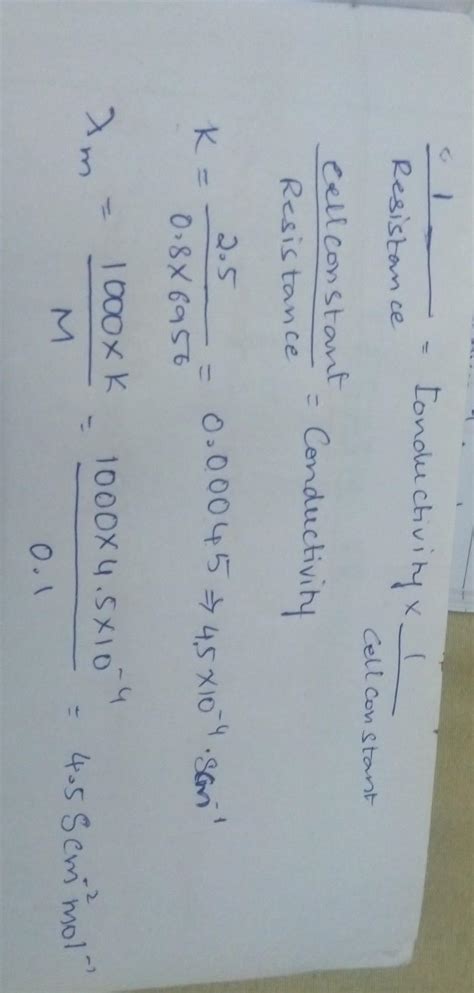 1/Resistance = Conductivity × 1/Cell constant
Cell constant/Resistance = Conductivity
K = 2.5/0.8×6956 = 0.00045 ⇒ 4.5 ×10⁻⁴ . Scm⁻¹
λm = 1000×K/M = 1000×4.5×10⁻⁴/0.1 = 4.5 S cm⁻² mol⁻¹